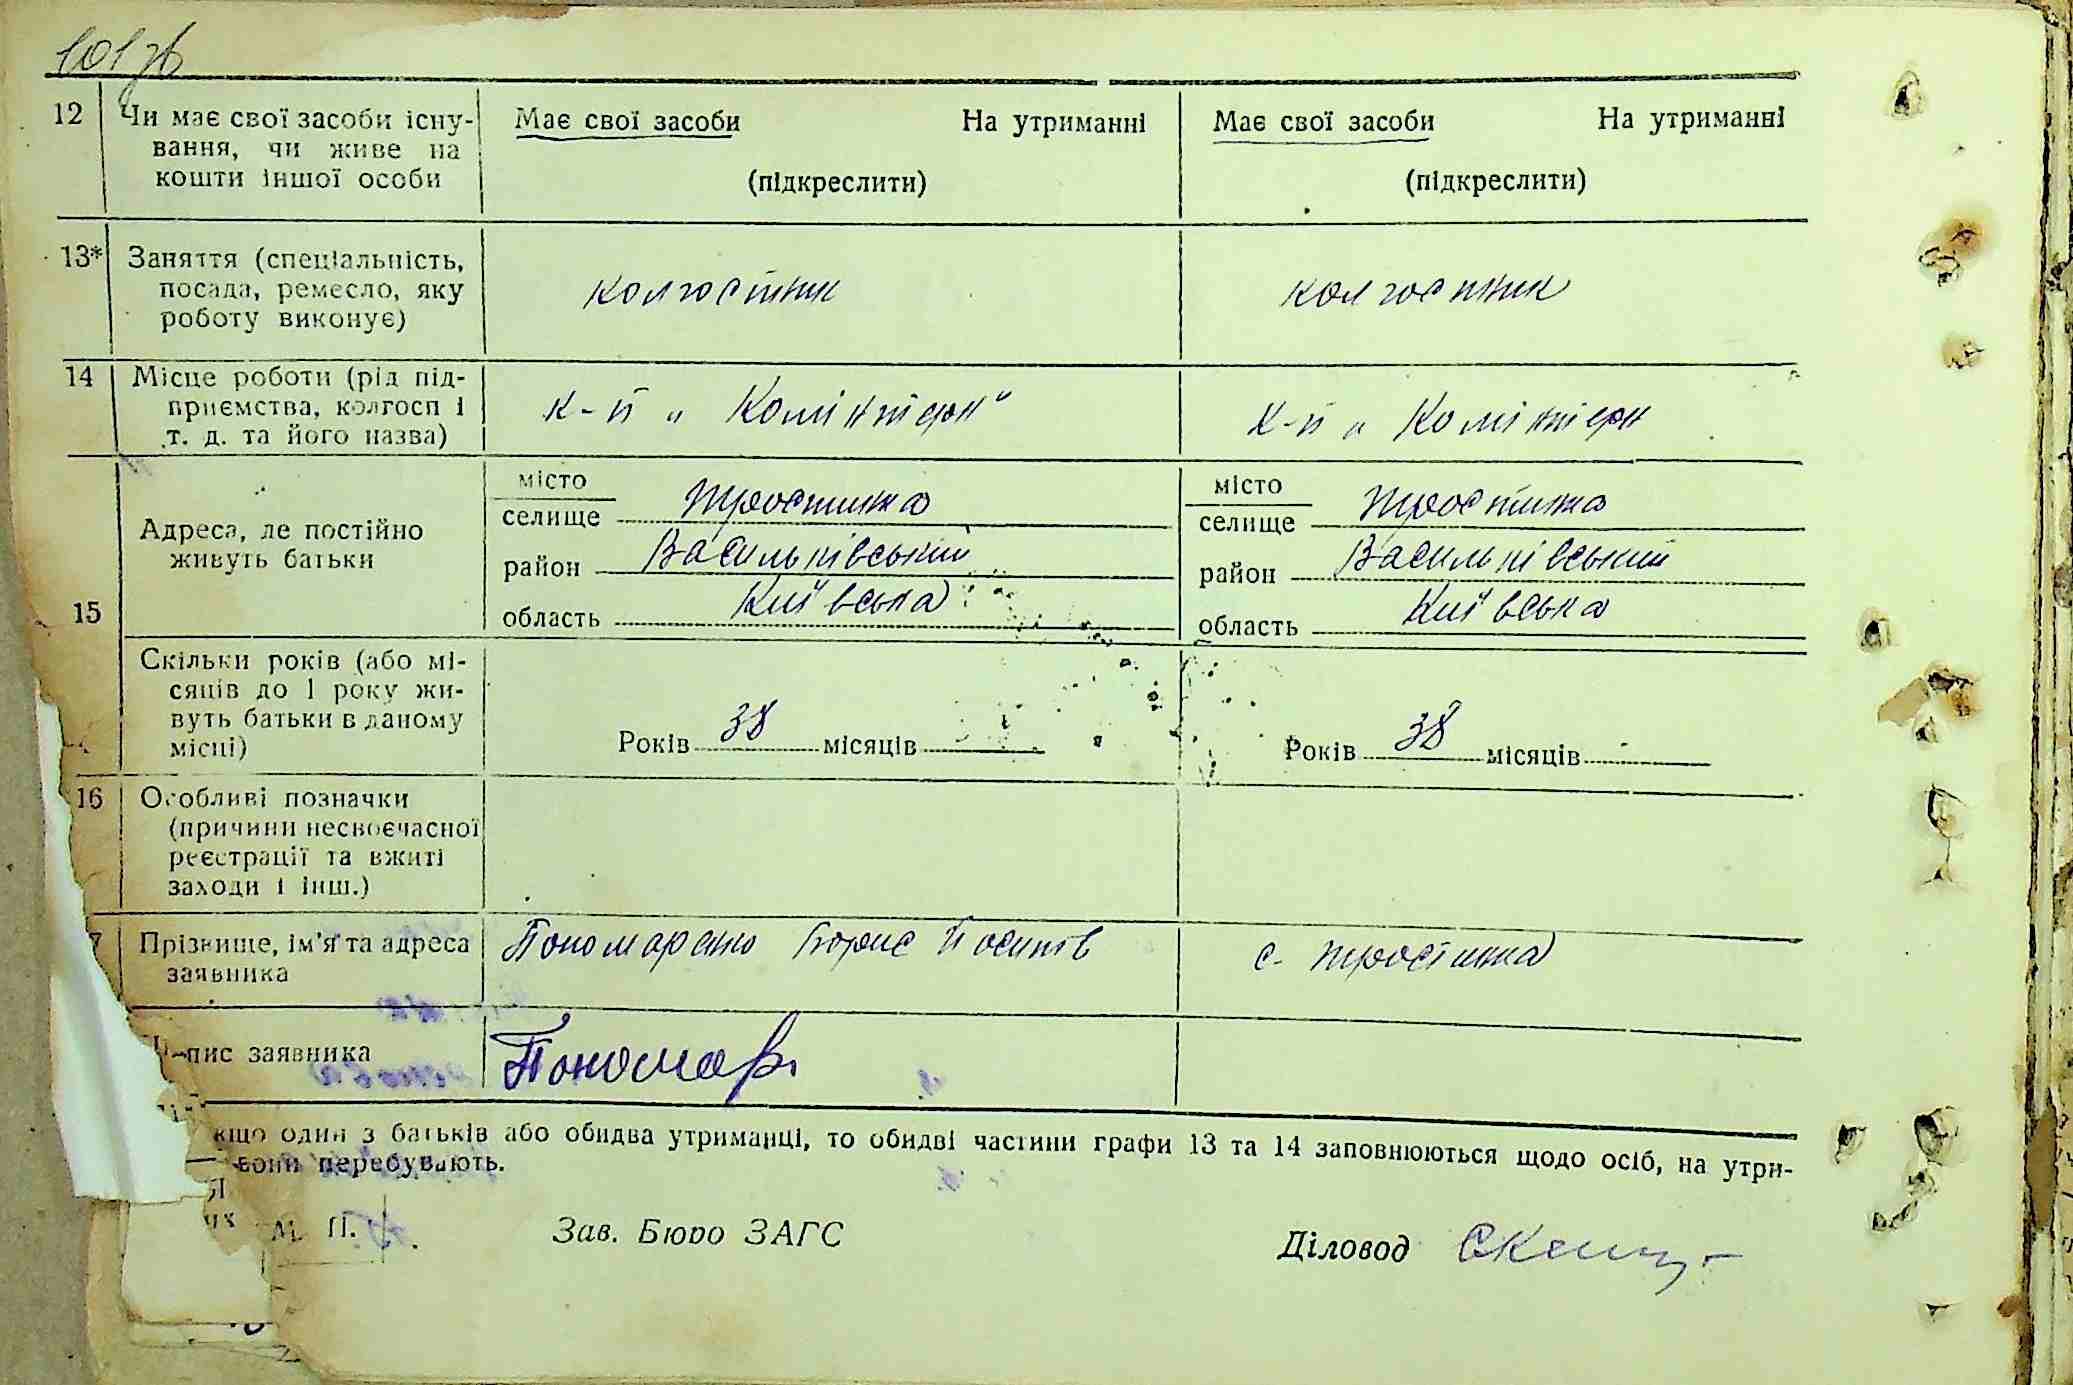 101 зв
12 Чи має свої засоби існу- Має свої засоби На утриманні Має свої засоби На утриманні
вання, чи живе на
кошти іншої особи (підкреслити) (підкреслити)
13* Заняття (спеціальність,
посада, ремесло, яку колгоспник колгоспник
роботу виконує)
14 Місце роботи (рід під-
приємства, колгосп і к-п „Комінтерн" к-п „Комінтерн
т. д. та його назва)
місто місто
селище Тростинка селище Тростинка
Адреса, де постійно
живуть батьки район Васильківський район Васильківський
15 область Київська область Київська
Скільки років (або мі-
сяців до 1 року жи-
вуть батьки в даному
місці) Років 38 місяців Років 38 місяців
16 Особливі позначки
(причини несвоєчасної
реєстрації та вжиті
заходи і інш.)
7 Прізвище, ім'я та адреса Пономаренко Борис Йосипів с. Тростинка
заявника
пис заявника Пономар
кщо один з батьків або обидва утриманці, то обидві частини графи 13 та 14 заповнюються щодо осіб, на утри-
вони перебувають.
М. П. Зав. Бюро ЗАГС Діловод